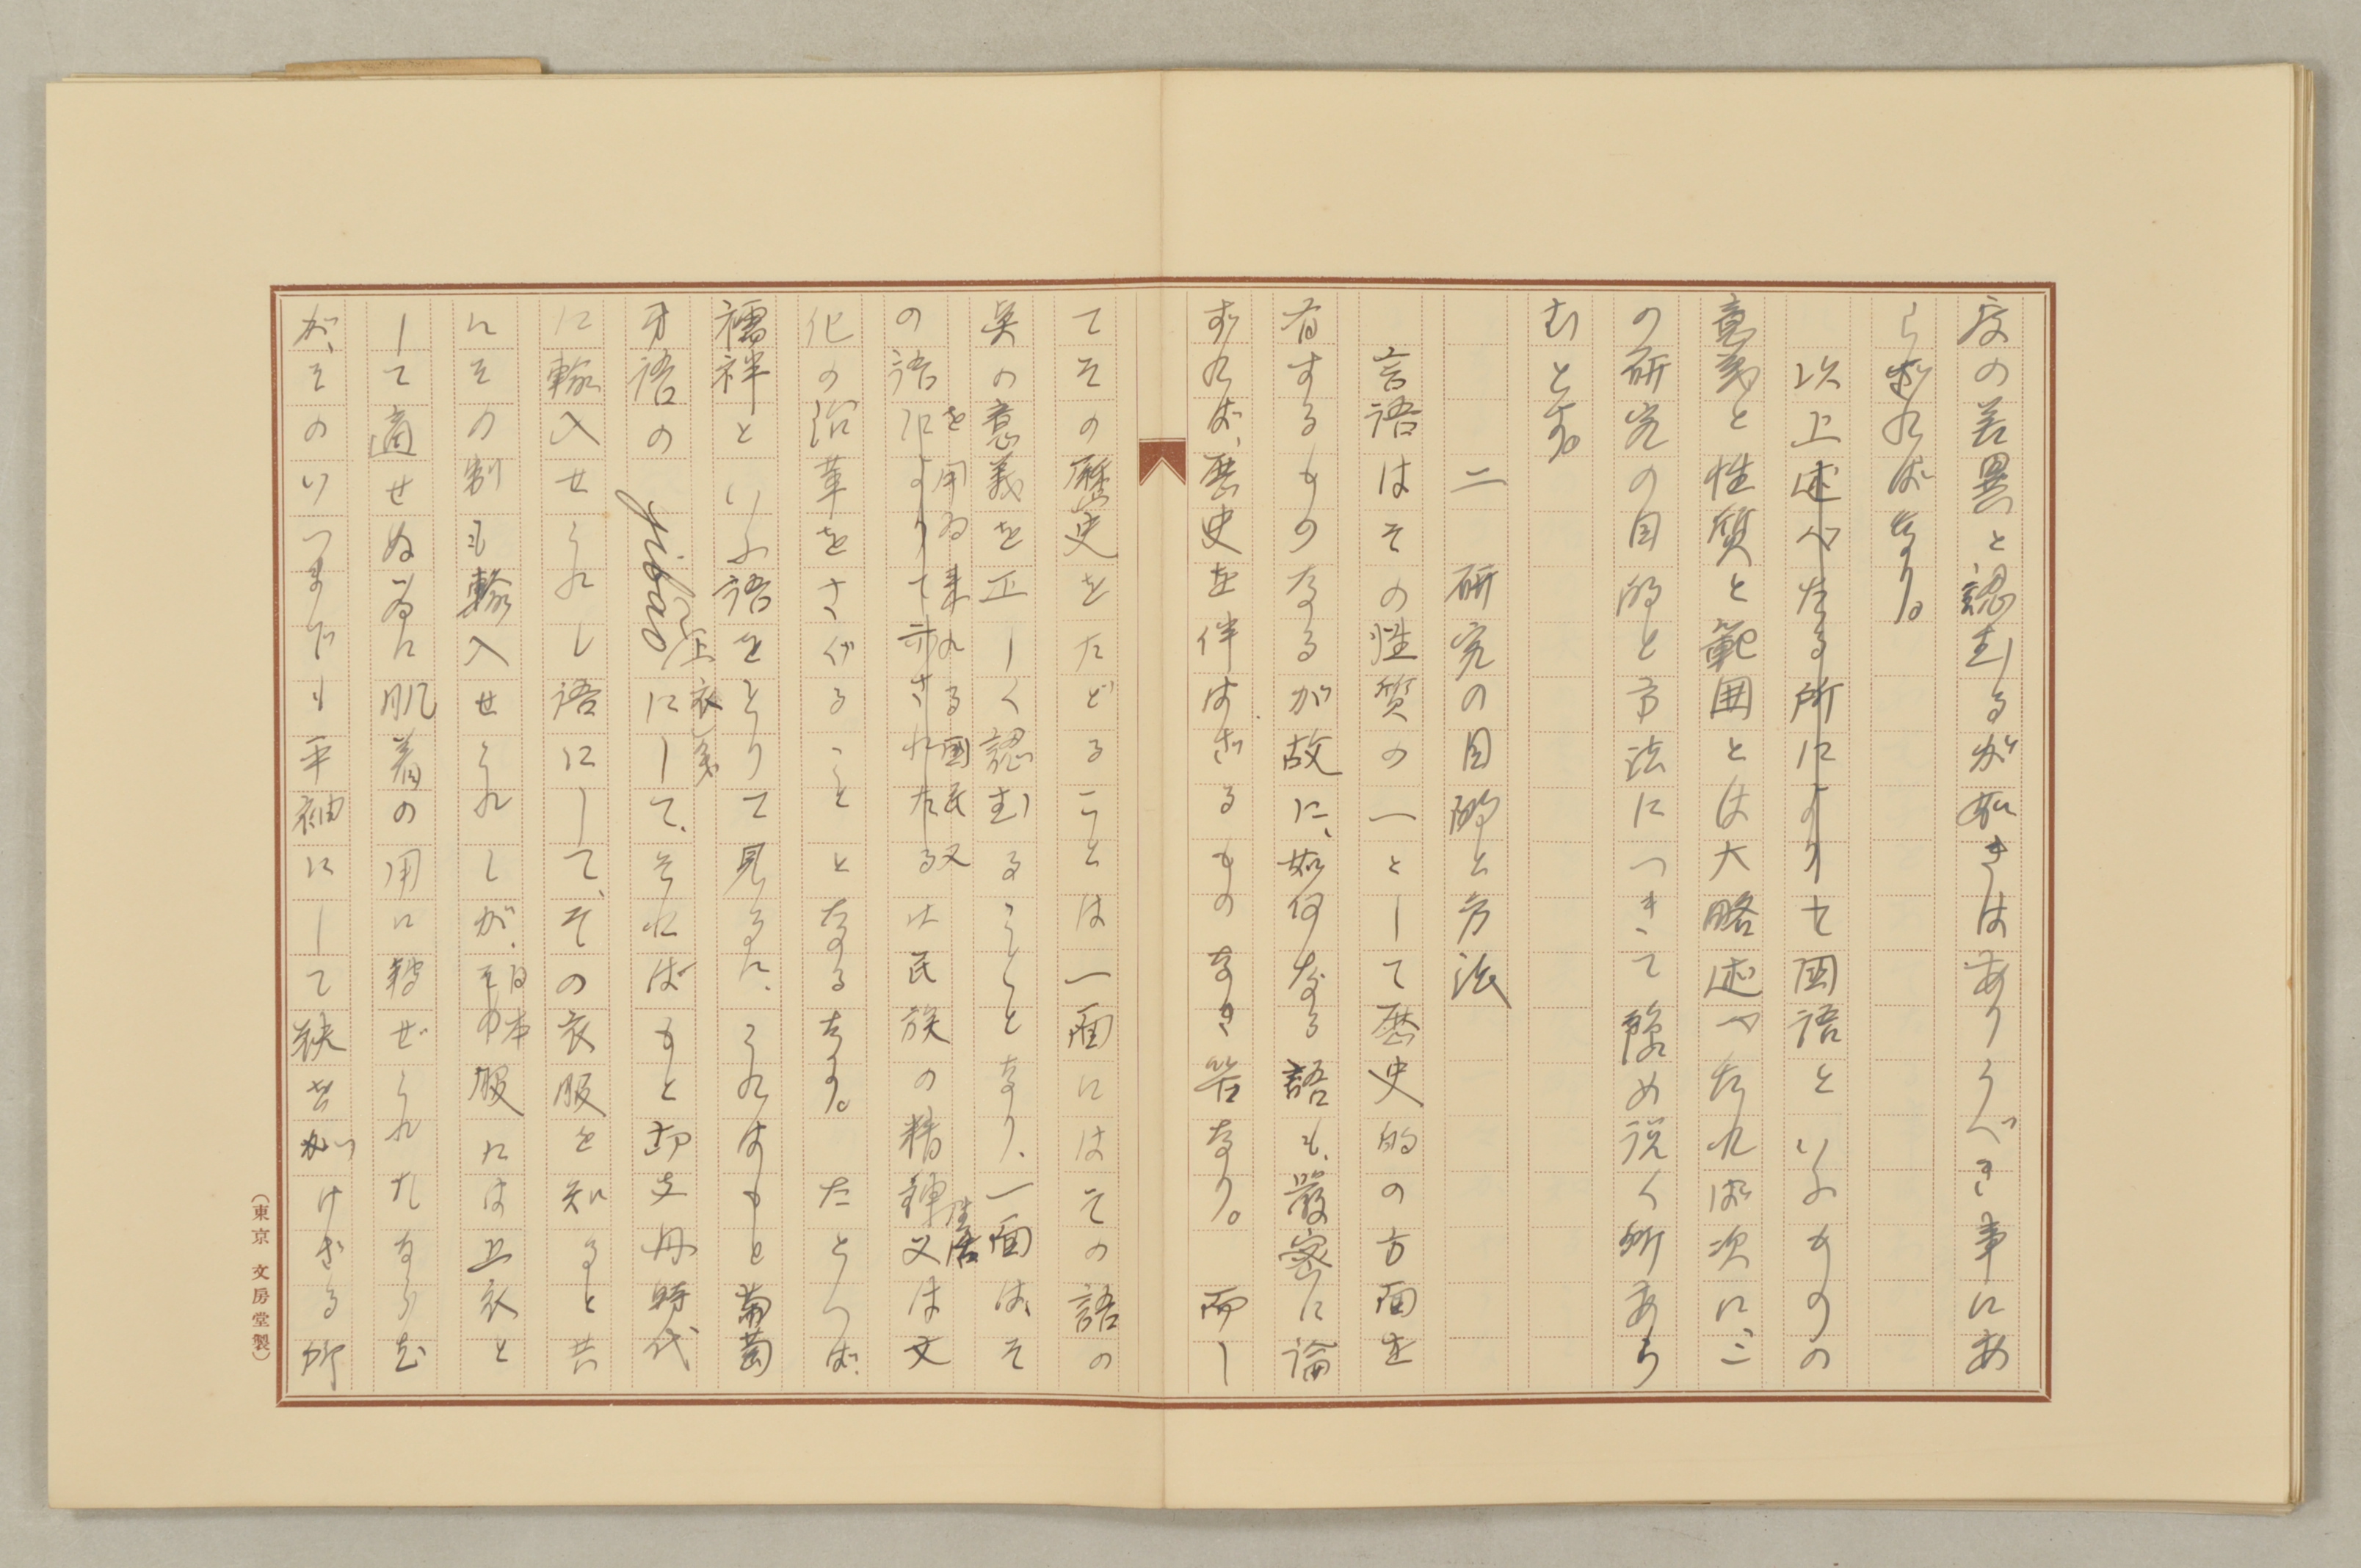 度の差異と認むるが如きはありうべき事にあ
らざればなり。
以上述べたる所によりて国語といふものの
意義と性質と範囲とは大略述べたれば次に、こ
の研究の目的と方法につきて豫め説く所あら
むとす。
二 研究の目的と方法
言語はその性質の一として歴史的の方面を
有するものなるが故に、如何なる語も、厳密に論
ずれば、歴史を伴はざるものなき筈なり。而し
てその歴史をたどることは一面にはその語の
真の意義を正しく認むることとなり、一面は、そ
の語によりて示されたる
を用ゐ来れる国民又
は民族の精神
生活
又は文
化の沿革をさぐることとなるなり。たとへば、
襦袢といふ語をとりて見るに、これはもと葡萄
牙語の gibão
(上衣の義)
にして、そればもと切支丹時代
に輸入せられし語にして、その衣服を知ると共
にその制も輸入せられしが、
日本
服には上衣と
して適せぬ為に肌着の用に転ぜられたるなら
が、そのいつまでも平袖にして袂をがつけざる所
(東京 文房堂製)